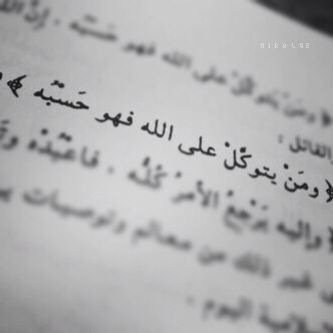 ﴿ ومَنْ يتوكّلْ على الله فهو حَسْبُه . إنّ
القائل :
﴿ ومَنْ يتوكّلْ على الله فهو حَسْبُه ﴾
﴿ وإليه يُرْجَعُ الأمرُ كُلُّه . فاعْبُدْه
غير ذلك من معالم وتوصيات
اليوم .